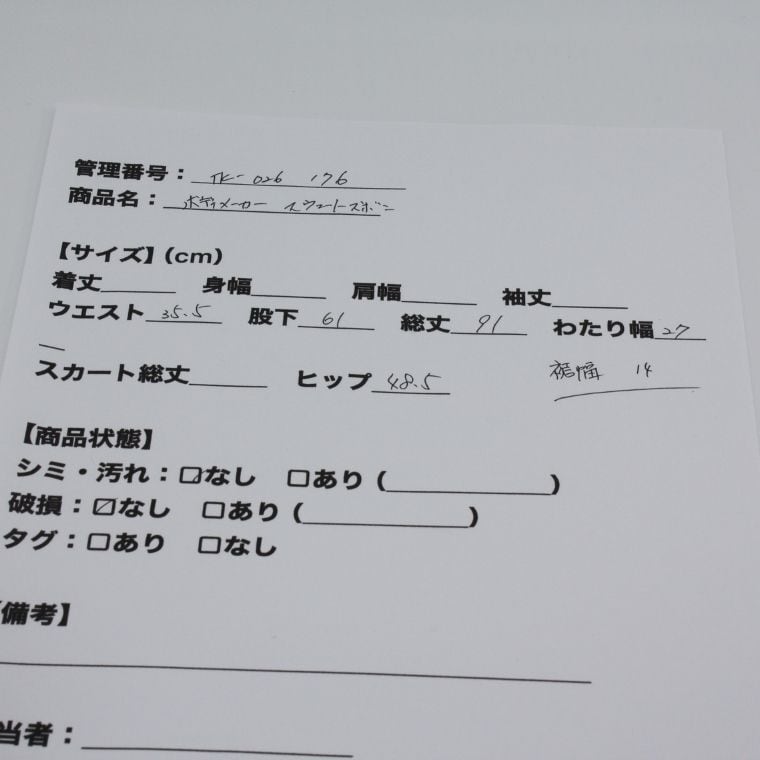 管理番号： TK-026 176
商品名： ボディメーカー スウェートズボン
【サイズ】(cm)
着丈 身幅 肩幅 袖丈
ウエスト 35.5 股下 61 総丈 91 わたり幅 27
スカート総丈 ヒップ 48.5 裾幅 14
【商品状態】
シミ・汚れ：☑なし □あり ( )
破損：☑なし □あり ( )
タグ：□あり □なし
【備考】
当者：